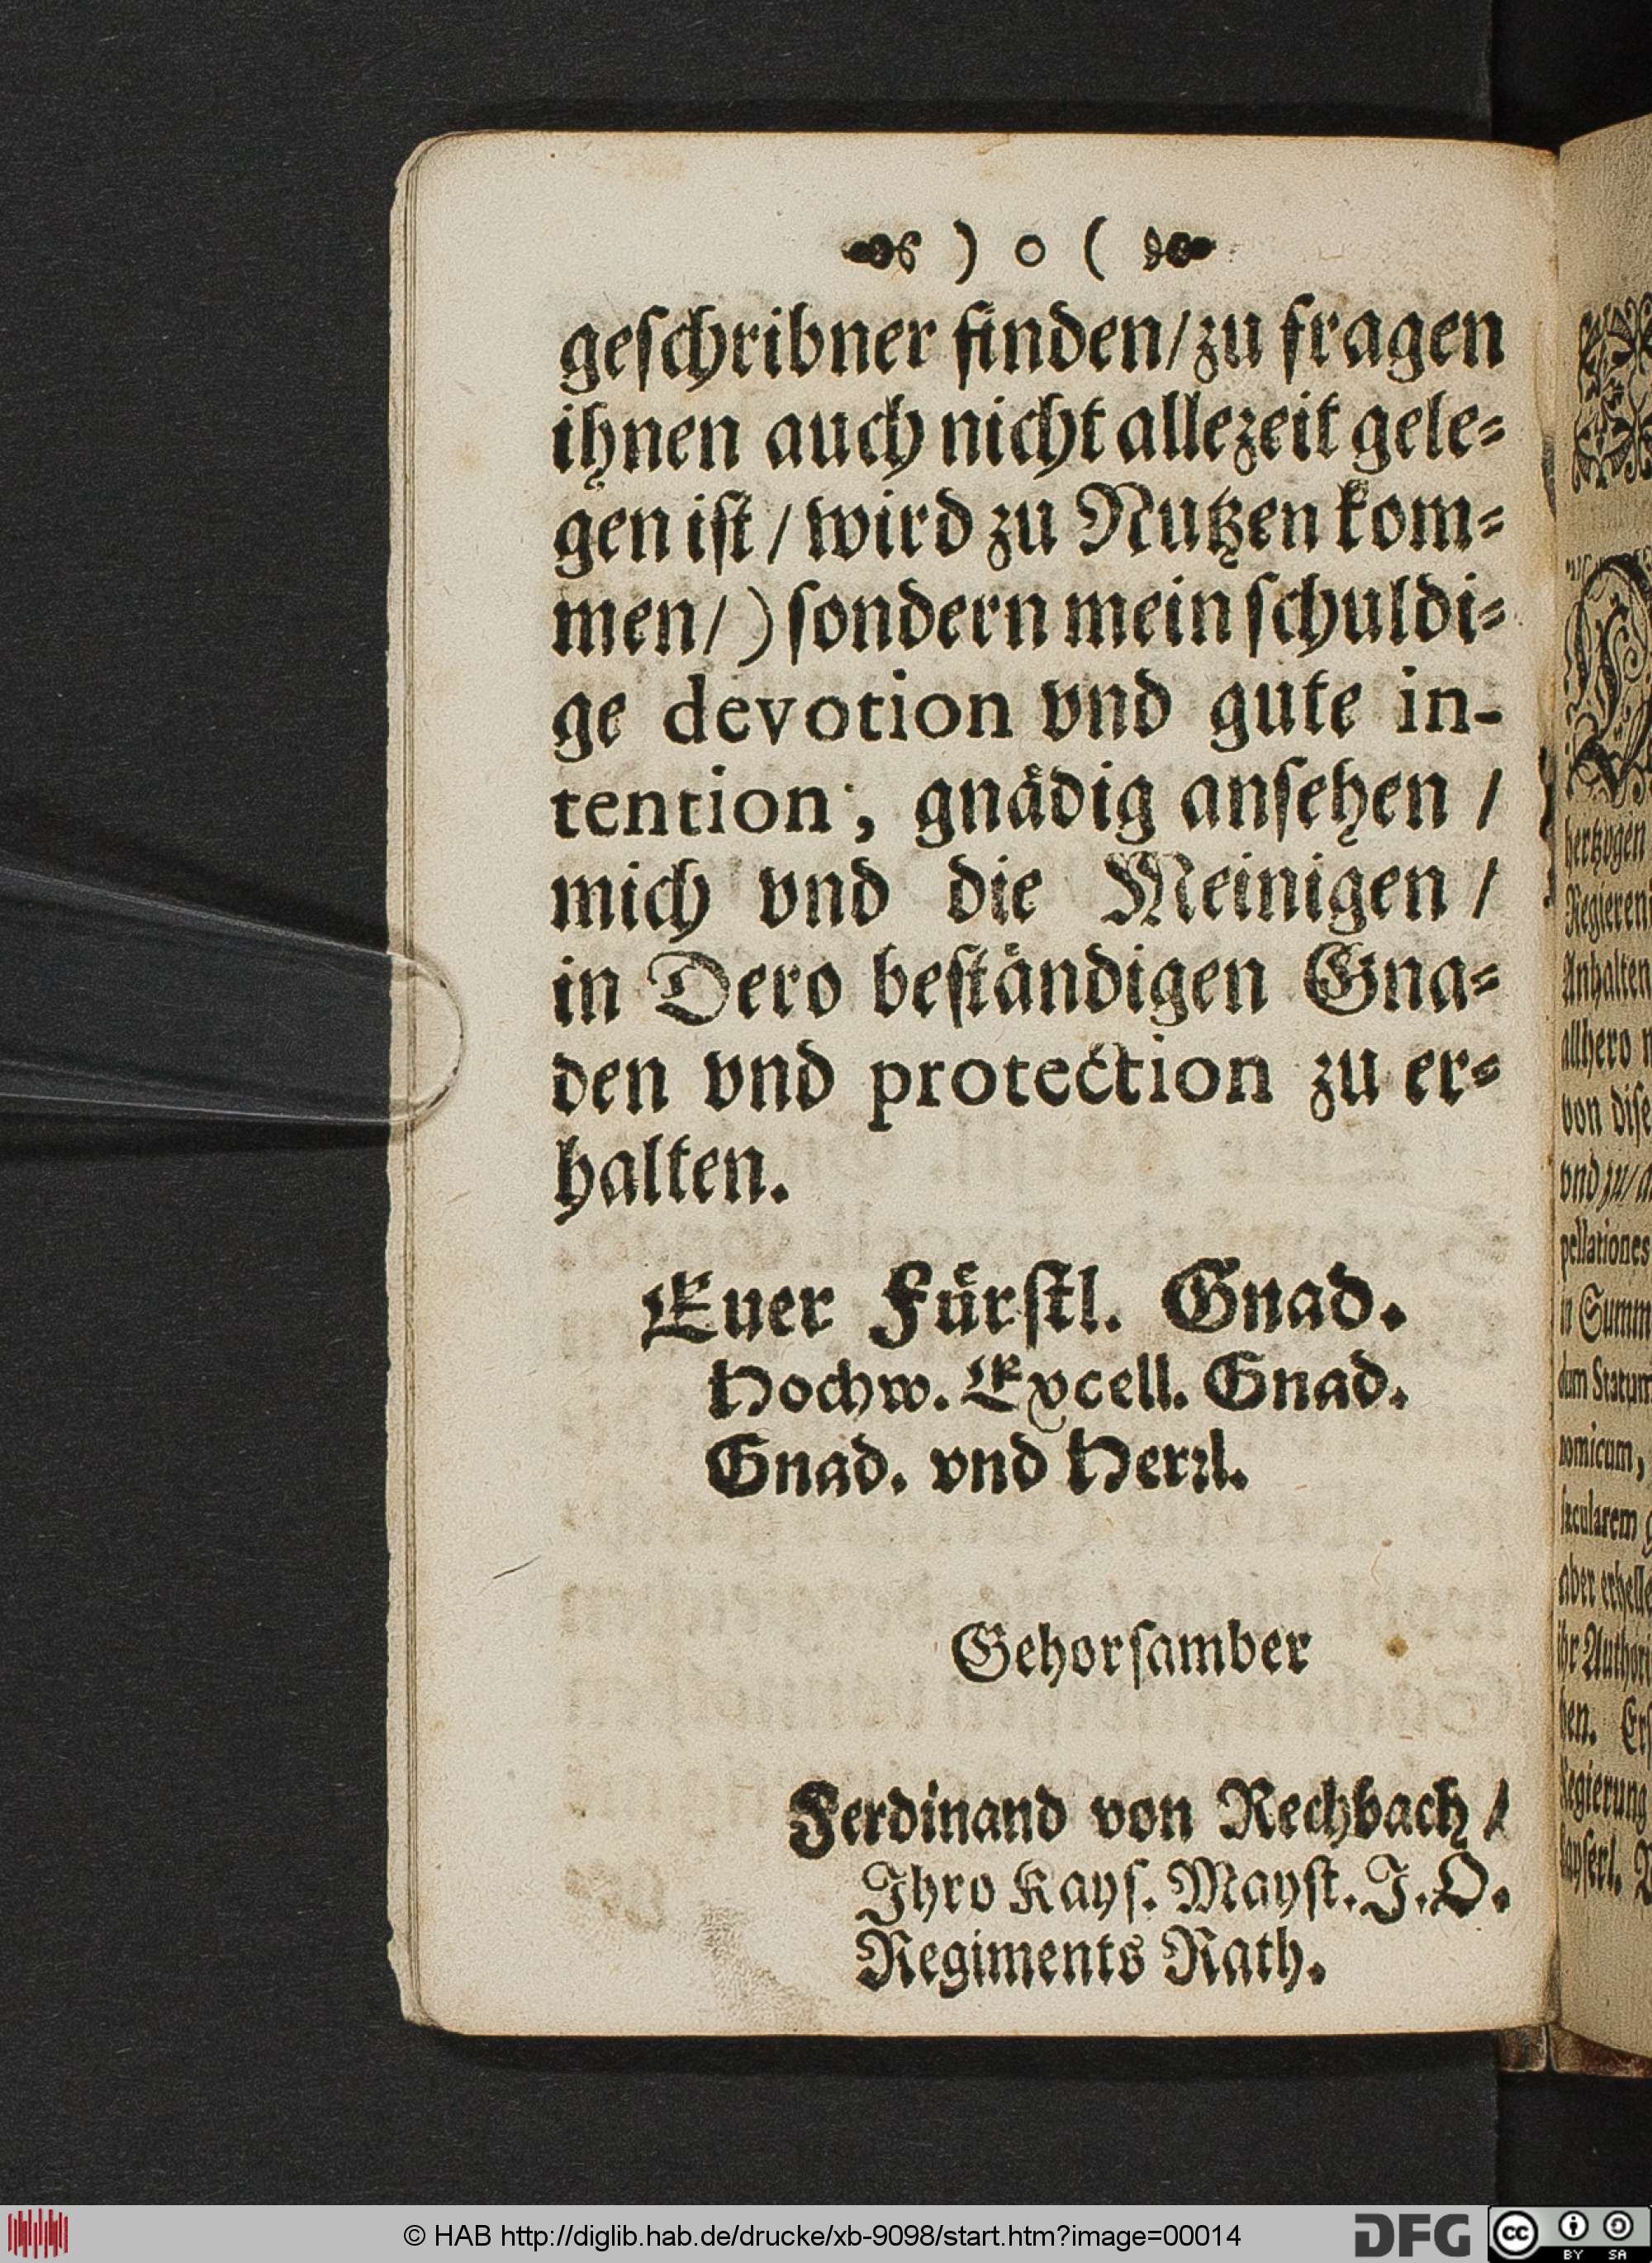 ) o (
geſchribner finden/zu fragen
ihnen auch nicht allezeit gele⸗
gen iſt / wird zu Nutzen kom⸗
men/) ſondern mein ſchuldi⸗
ge devotion vnd gute in-
tention, gnaͤdig anſehen /
mich vnd die Meinigen /
in Dero beſtaͤndigen Gna⸗
den vnd protection zu er⸗
halten.
Euer Fuͤrſtl. Gnad.
Hochw. Excell. Gnad.
Gnad. vnd Herꝛl.
Gehorſamber
Ferdinand von Rechbach /
Ihro Kayſ. Mayſt. J. O.
Regiments Rath.
hertzogen
Regieren
Anhalten
allhero
von diſe
vnd zu/
pellationes
in Summ
dum Statum
nomicum,
ſæcularem
aber erhelle
ihr Authori
hen. Erſ
Regierung
kayſerl.
© HAB http://diglib.hab.de/drucke/xb-9098/start.htm?image=00014
DFG
cc BY SA